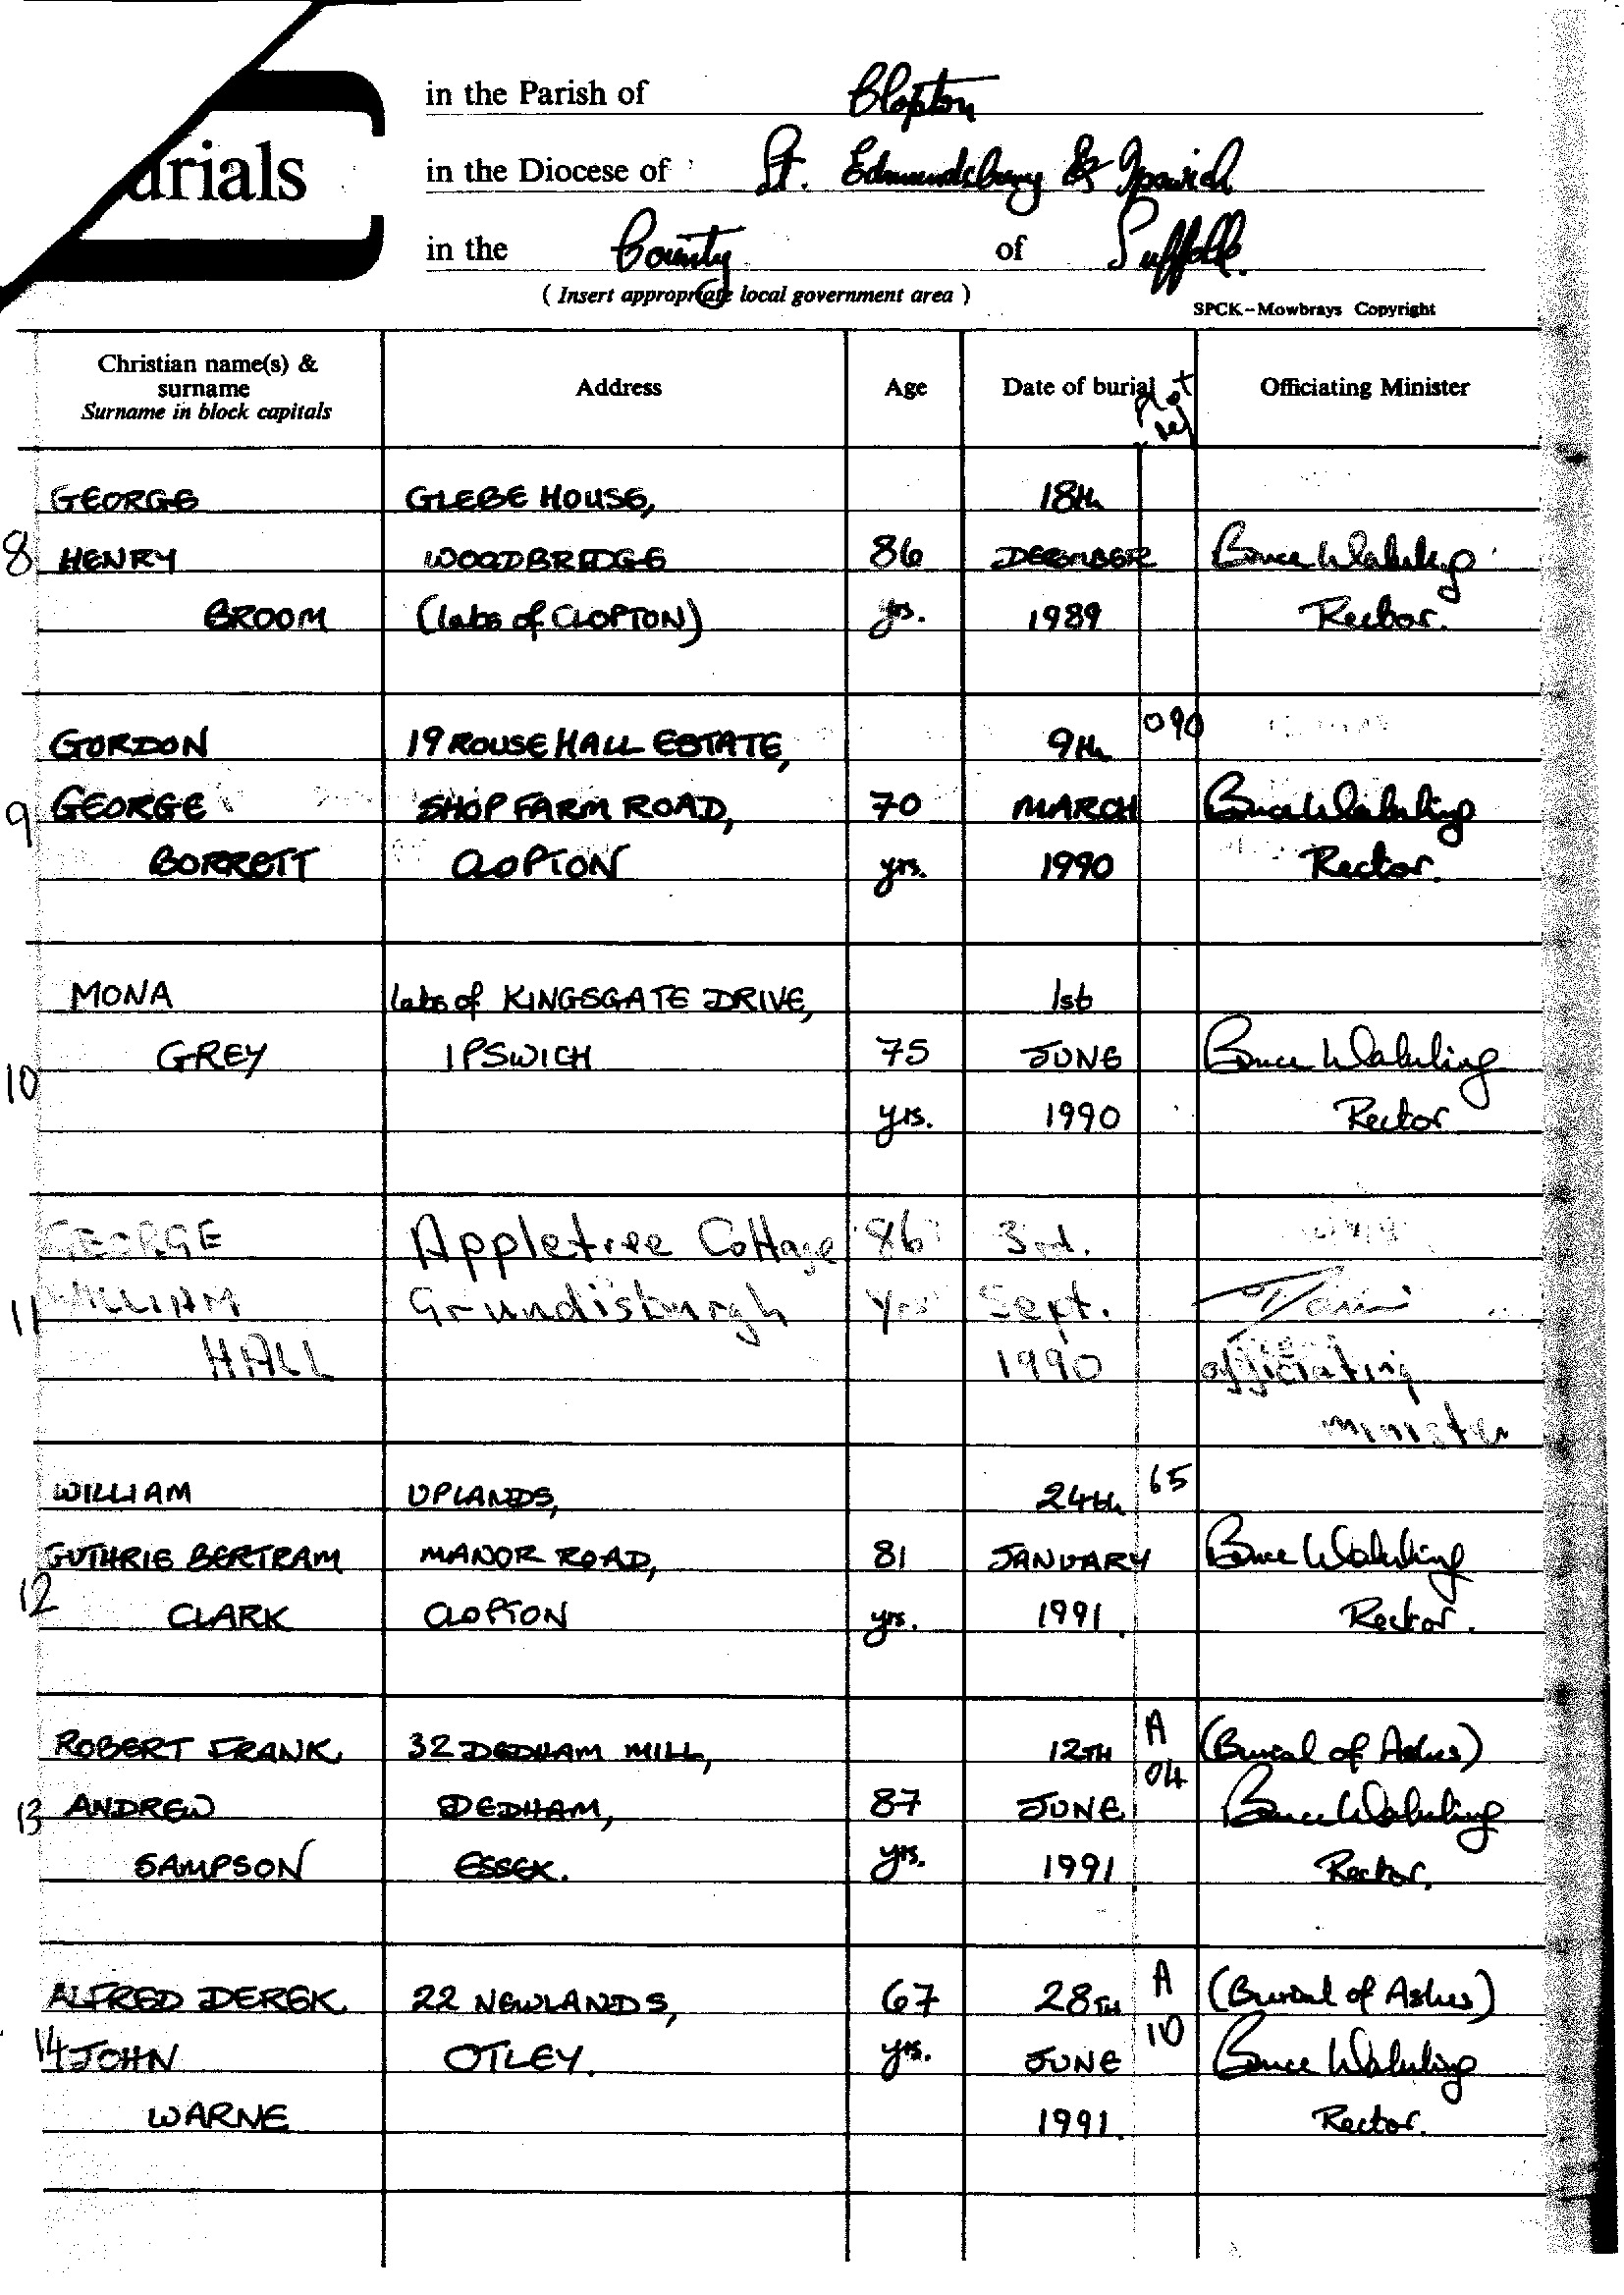 urials
in the Parish of Clopton
in the Diocese of St. Edmundsbury & Ipswich
in the County of Suffolk.
( Insert appropriate local government area )
SPCK-Mowbrays Copyright
Christian name(s) & surname Surname in block capitals Address Age Date of burial Plot ref Officiating Minister
GEORGE GLEBE HOUSE, 18th
8 HENRY WOODBRIDGE 86 DECEMBER Bruce Wakeling
BROOM (late of CLOPTON) yrs. 1989 Rector.
GORDON 19 ROUSE HALL ESTATE, 9th 090
9 GEORGE SHOP FARM ROAD, 70 MARCH Bruce Wakeling
BORRETT CLOPTON yrs. 1990 Rector.
MONA late of KINGSGATE DRIVE, 1st
10 GREY IPSWICH 75 JUNE Bruce Wakeling
yrs. 1990 Rector
GEORGE Appletree Cottage 86 3rd.
11 WILLIAM Grundisburgh yrs Sept.
HALL 1990 officiating
minister
WILLIAM UPLANDS, 24th 65
GUTHRIE BERTRAM MANOR ROAD, 81 JANUARY Bruce Wakeling
12 CLARK CLOPTON yrs. 1991. Rector.
ROBERT FRANK 32 DEDHAM MILL, 12TH A 04 (Burial of Ashes)
13 ANDREW DEDHAM, 87 JUNE Bruce Wakeling
SAMPSON ESSEX. yrs. 1991 Rector.
ALFRED DEREK 22 NEWLANDS, 67 28TH A 10 (Burial of Ashes)
14 JOHN OTLEY. yrs. JUNE Bruce Wakeling
WARNE 1991. Rector.